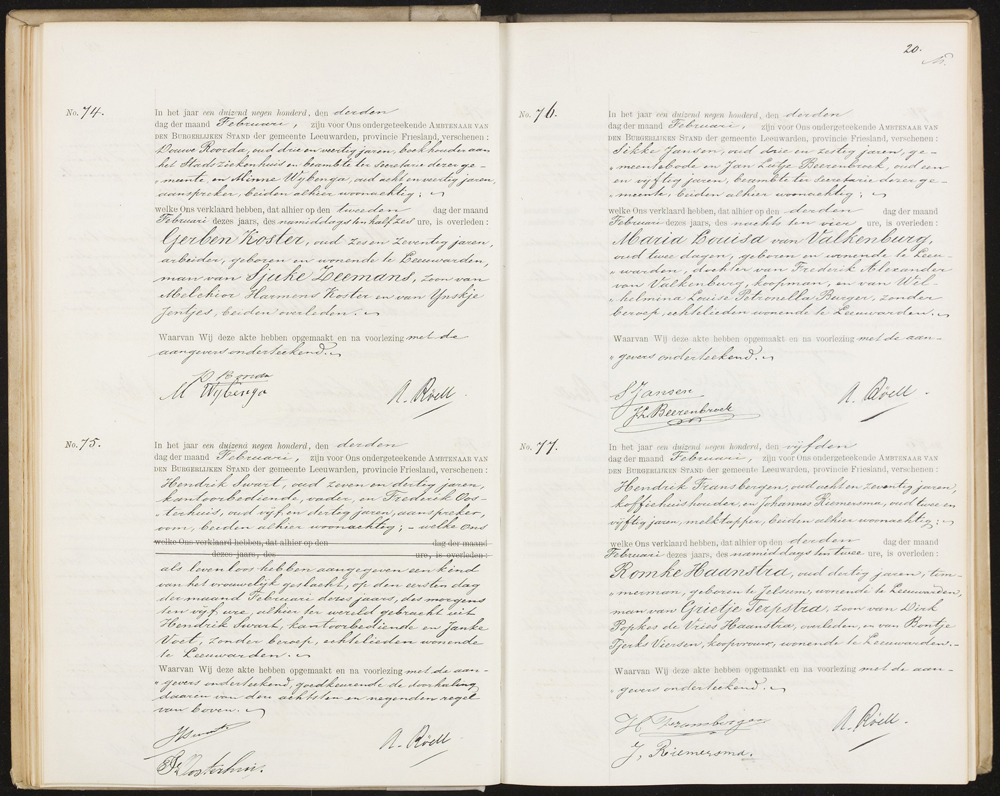 No. 74.
In het jaar een duizend negen honderd, den derden
dag der maand Februari, zijn voor Ons ondergeteekende AMBTENAAR VAN
DEN BURGERLIJKEN STAND der gemeente Leeuwarden, provincie Friesland, verschenen:
Douwe Roorda, oud drie en veertig jaren, boekhouder aan
het Stads ziekenhuis en beambte ter Secretarie dezer ge-
meente, en Minne Wybenga, oud acht en veertig jaren,
aanspreker, beiden alhier woonachtig;
welke Ons verklaard hebben, dat alhier op den tweeden dag der maand
Februari dezes jaars, des namiddags ten half zes ure, is overleden:
Gerben Koster, oud zes en zeventig jaren,
arbeider, geboren en wonende te Leeuwarden,
man van Sjuke Zeemans, zoon van
Melchior Harmens Koster en van Ynskje
Jentjes, beiden overleden.
Waarvan Wij deze akte hebben opgemaakt en na voorlezing met de
aangevers onderteekend.
D Roorda
M Wybenga
A. Röell
No. 75.
In het jaar een duizend negen honderd, den derden
dag der maand Februari, zijn voor Ons ondergeteekende AMBTENAAR VAN
DEN BURGERLIJKEN STAND der gemeente Leeuwarden, provincie Friesland, verschenen:
Hendrik Swart, oud zeven en dertig jaren,
kantoorbediende, vader, en Frederik Oos-
terhuis, oud vijf en dertig jaren, aanspreker,
oom, beiden alhier woonachtig; - welke Ons
welke Ons verklaard hebben, dat alhier op den dag der maand
dezes jaars, des ure, is overleden:
als levenloos hebben aangegeven een kind
van het vrouwelijk geslacht, op den eersten dag
der maand Februari dezes jaars, des morgens
ten vijf ure, alhier ter wereld gebracht uit
Hendrik Swart, kantoorbediende en Janke
Voet, zonder beroep, echtelieden wonende
te Leeuwarden.
Waarvan Wij deze akte hebben opgemaakt en na voorlezing met de aan-
gevers onderteekend, goedkeurende de doorhaling
daarin van den achtsten en negenden regel
van boven.
HSwart
Fr Oosterhuis.
A. Röell
20.
No. 76.
In het jaar een duizend negen honderd, den derden
dag der maand Februari, zijn voor Ons ondergeteekende AMBTENAAR VAN
DEN BURGERLIJKEN STAND der gemeente Leeuwarden, provincie Friesland, verschenen:
Sikke Jansen, oud drie en zestig jaren, ge-
meentebode en Jan Beerenbrock, oud een
en vijftig jaren, beambte ter Secretarie dezer ge-
meente, beiden alhier woonachtig;
welke Ons verklaard hebben, dat alhier op den derden dag der maand
Februari dezes jaars, des nachts ten vier ure, is overleden:
Maria Louisa van Valkenburg,
oud twee dagen, geboren en wonende te Leeu-
warden, dochter van Frederik Alexander
van Valkenburg, koopman, en van Wil-
helmina Louise Petronella Burger, zonder
beroep, echtelieden wonende te Leeuwarden.
Waarvan Wij deze akte hebben opgemaakt en na voorlezing met de aan-
gevers onderteekend.
S Jansen.
Beerenbrock
A. Röell.
No. 77.
In het jaar een duizend negen honderd, den vijfden
dag der maand Februari, zijn voor Ons ondergeteekende AMBTENAAR VAN
DEN BURGERLIJKEN STAND der gemeente Leeuwarden, provincie Friesland, verschenen:
Hendrik Transbergen, oud acht en zeventig jaren,
koffiehuishouder, en Johannes Riemersma, oud twee en
vijftig jaren, melktapper, beiden alhier woonachtig;
welke Ons verklaard hebben, dat alhier op den derden dag der maand
Februari dezes jaars, des namiddags ten twee ure, is overleden:
Romke Haanstra, oud dertig jaren, tim-
merman, geboren te Jelsum, wonende te Leeuwarden,
man van Grietje Terpstra, zoon van Dirk
Popkes de Vries Haanstra, overleden, en van Bontje
Tjerks Viersen, koopvrouw, wonende te Leeuwarden.
Waarvan Wij deze akte hebben opgemaakt en na voorlezing met de aan-
gevers onderteekend.
H
J. Riemersma.
A. Röell.